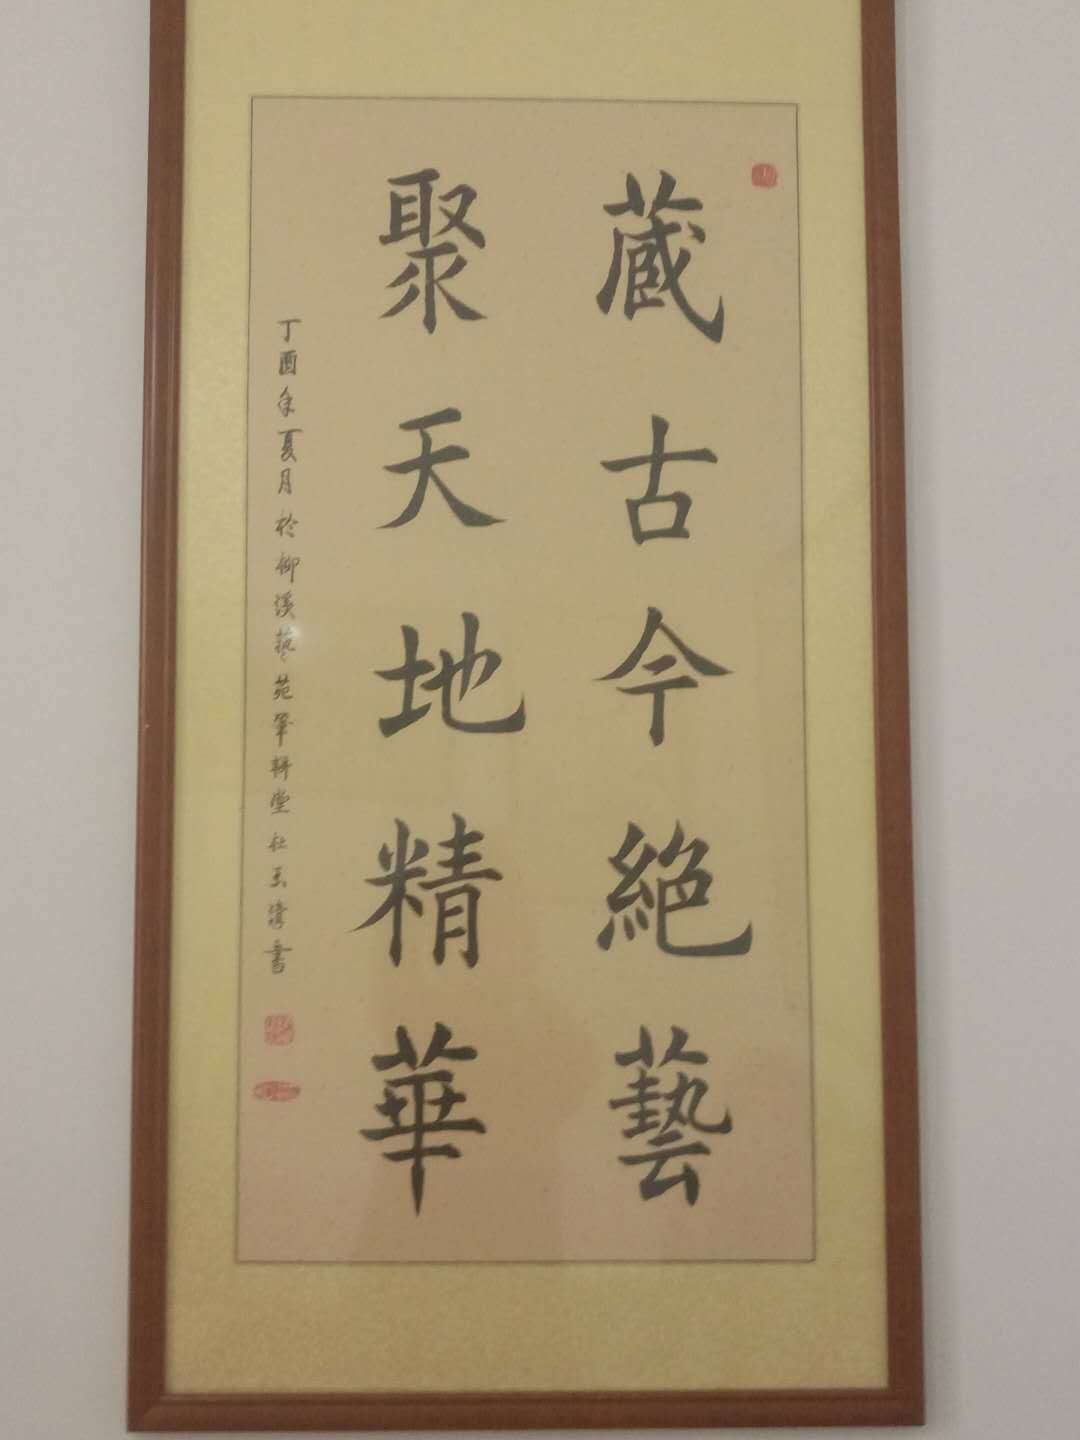 藏古今絕藝
聚天地精華
丁酉年夏月於柳溪藝苑筆耕堂杜玉 書